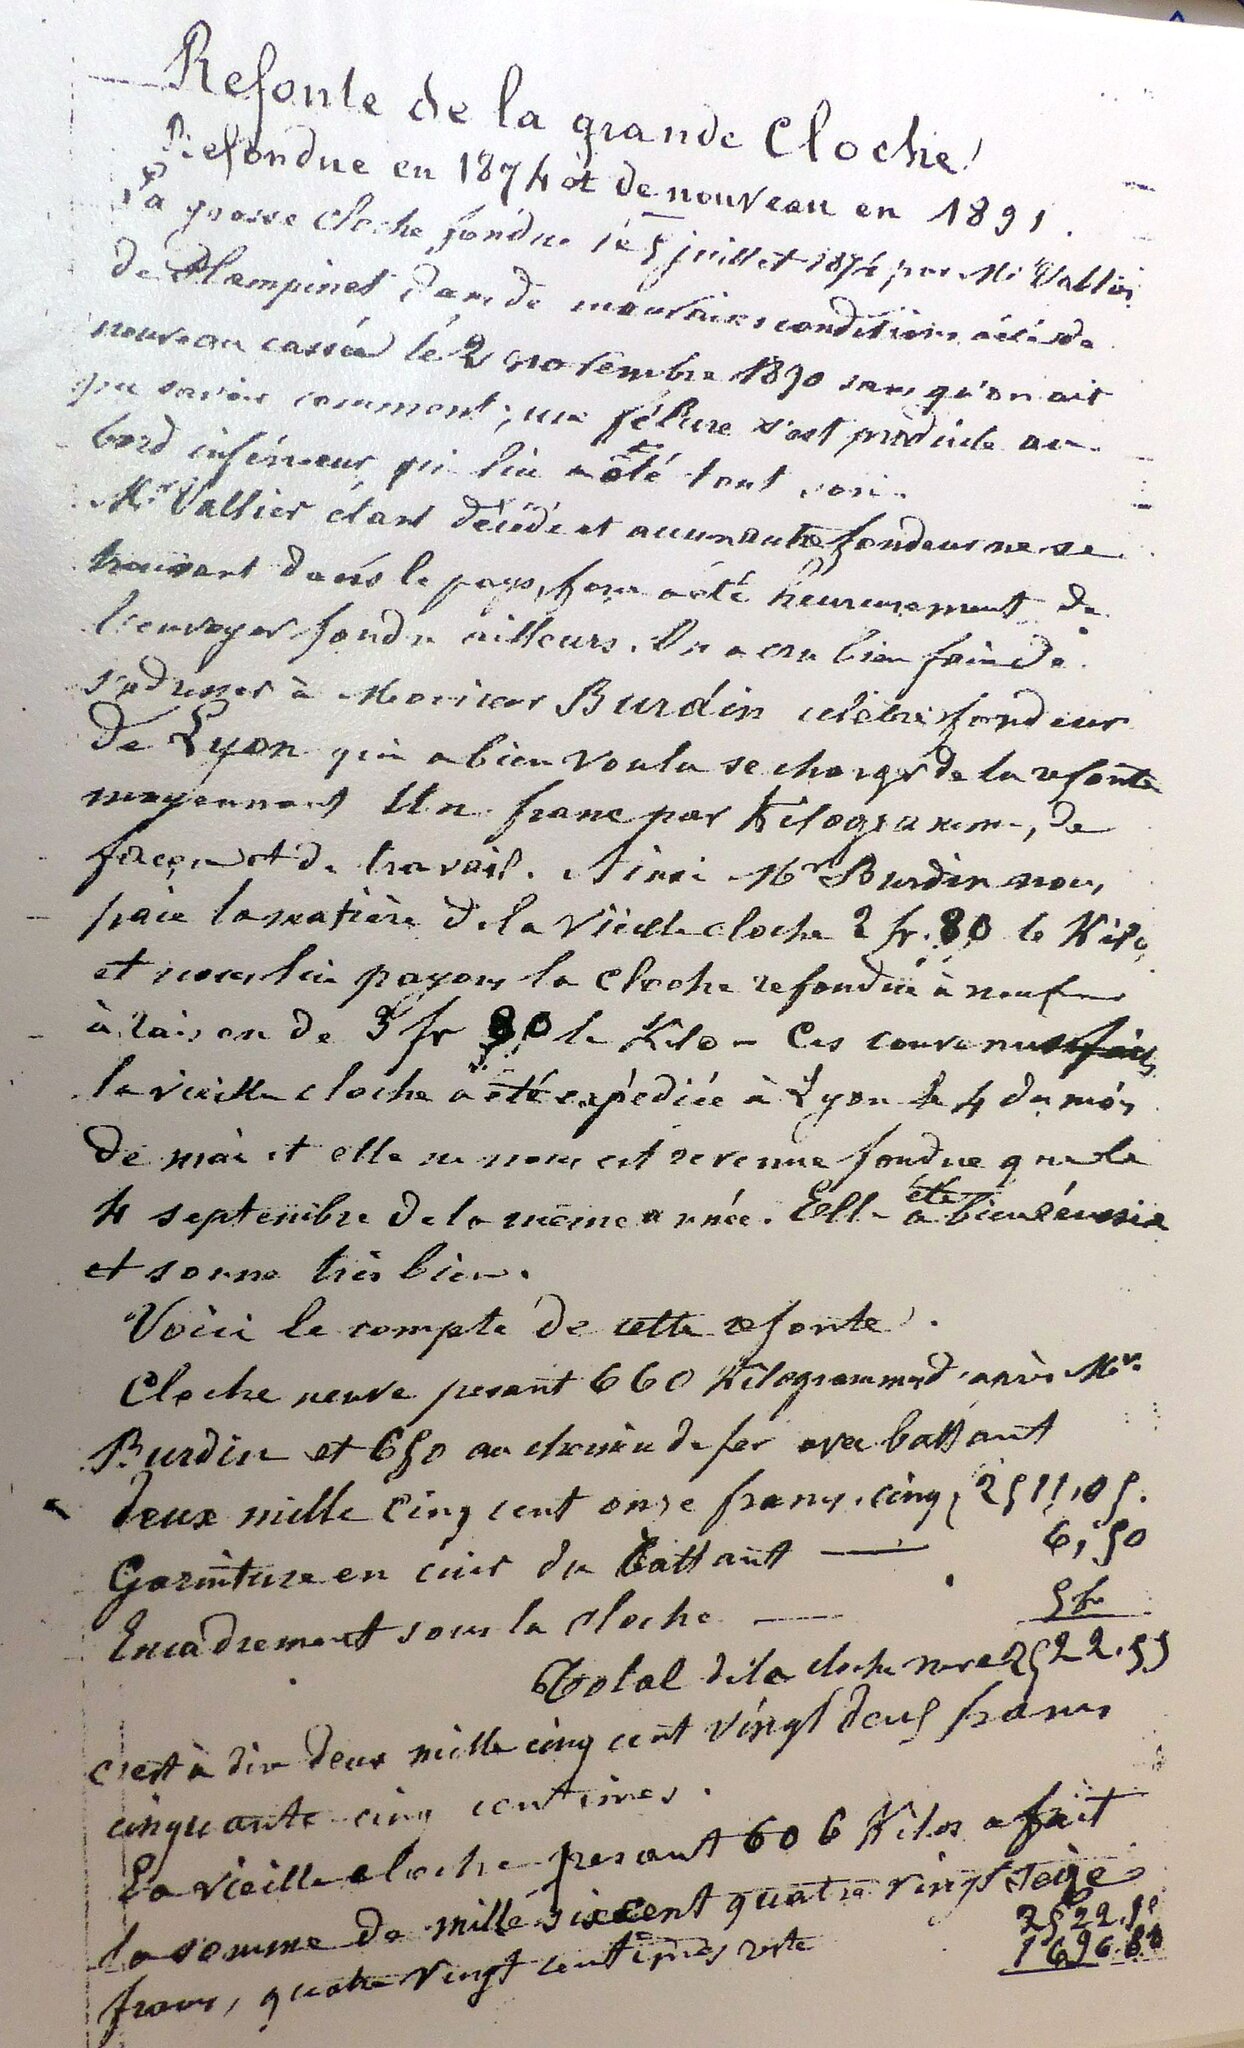 Refonte de la grande Cloche
Refondue en 1874 et de nouveau en 1891.
La grosse cloche fondue le 5 juillet 1874 par Mr Vallier
de dans de mauvaises conditions a été de
nouveau cassée le 2 novembre 1890 sans qu'on ait
pu savoir comment; une fêlure s'est produite au
bord inférieur qui lui a ôté tout son.
Mr Vallier étant décédé et aucun autre fondeur ne se
trouvant dans le pays, force a été heureusement de
l'envoyer fondre ailleurs. On a cru bien faire de
s'adresser à Monsieur Burdin célèbre fondeur
de Lyon qui a bien voulu se charger de la refonte
moyennant Un franc par Kilogramme, de
façon et de travail. Ainsi Mr Burdin nous
paie la matière de la vieille cloche 2 fr. 80 le Kilo,
et nous lui payons la cloche refondue à neuf
à raison de 3 fr 80 le Kilo - Ces
la vieille cloche a été expédiée à Lyon le 4 du mois
de mai et elle ne nous est revenue fondue que le
4 septembre de la même année. Elle a été bien réussie
et sonne très bien.
Voici le compte de cette refonte.
Cloche neuve pesant 660 Kilogrammes d'après Mr
Burdin et 650 au chemin de fer avec battant
deux mille cinq cent onze francs, cinq, 2511,05.
Garniture en cuir du battant — 6,50
Encadrement sous la cloche — 5 fr
Total de la cloche neuve 2522.55
c'est à dire deux mille cinq cent vingt deux francs
cinquante cinq centimes.
La vieille cloche pesant 606 Kilos a fait
la somme de mille six cent quatre vingt seize
francs, quatre vingt centimes reste 2522.55
1696.80